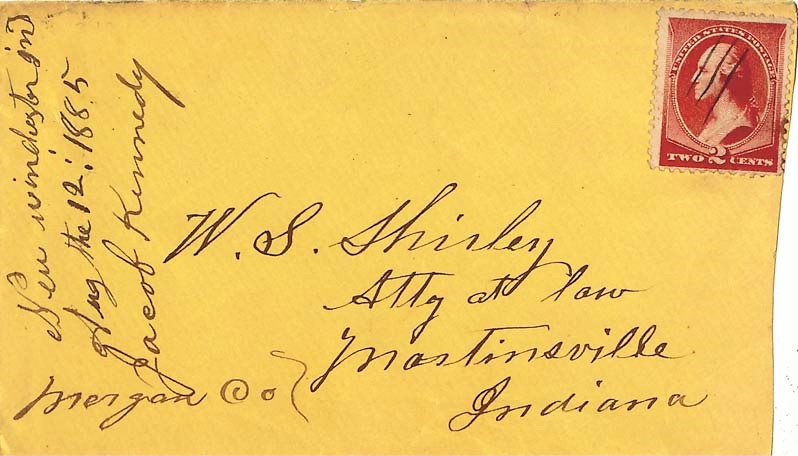 New winchester ind
Aug the 12: 1885
Jacob Kennedy
UNITED STATES POSTAGE
TWO 2 CENTS
W. S. Shirley
Atty at law
Martinsville
Morgan Co
Indiana